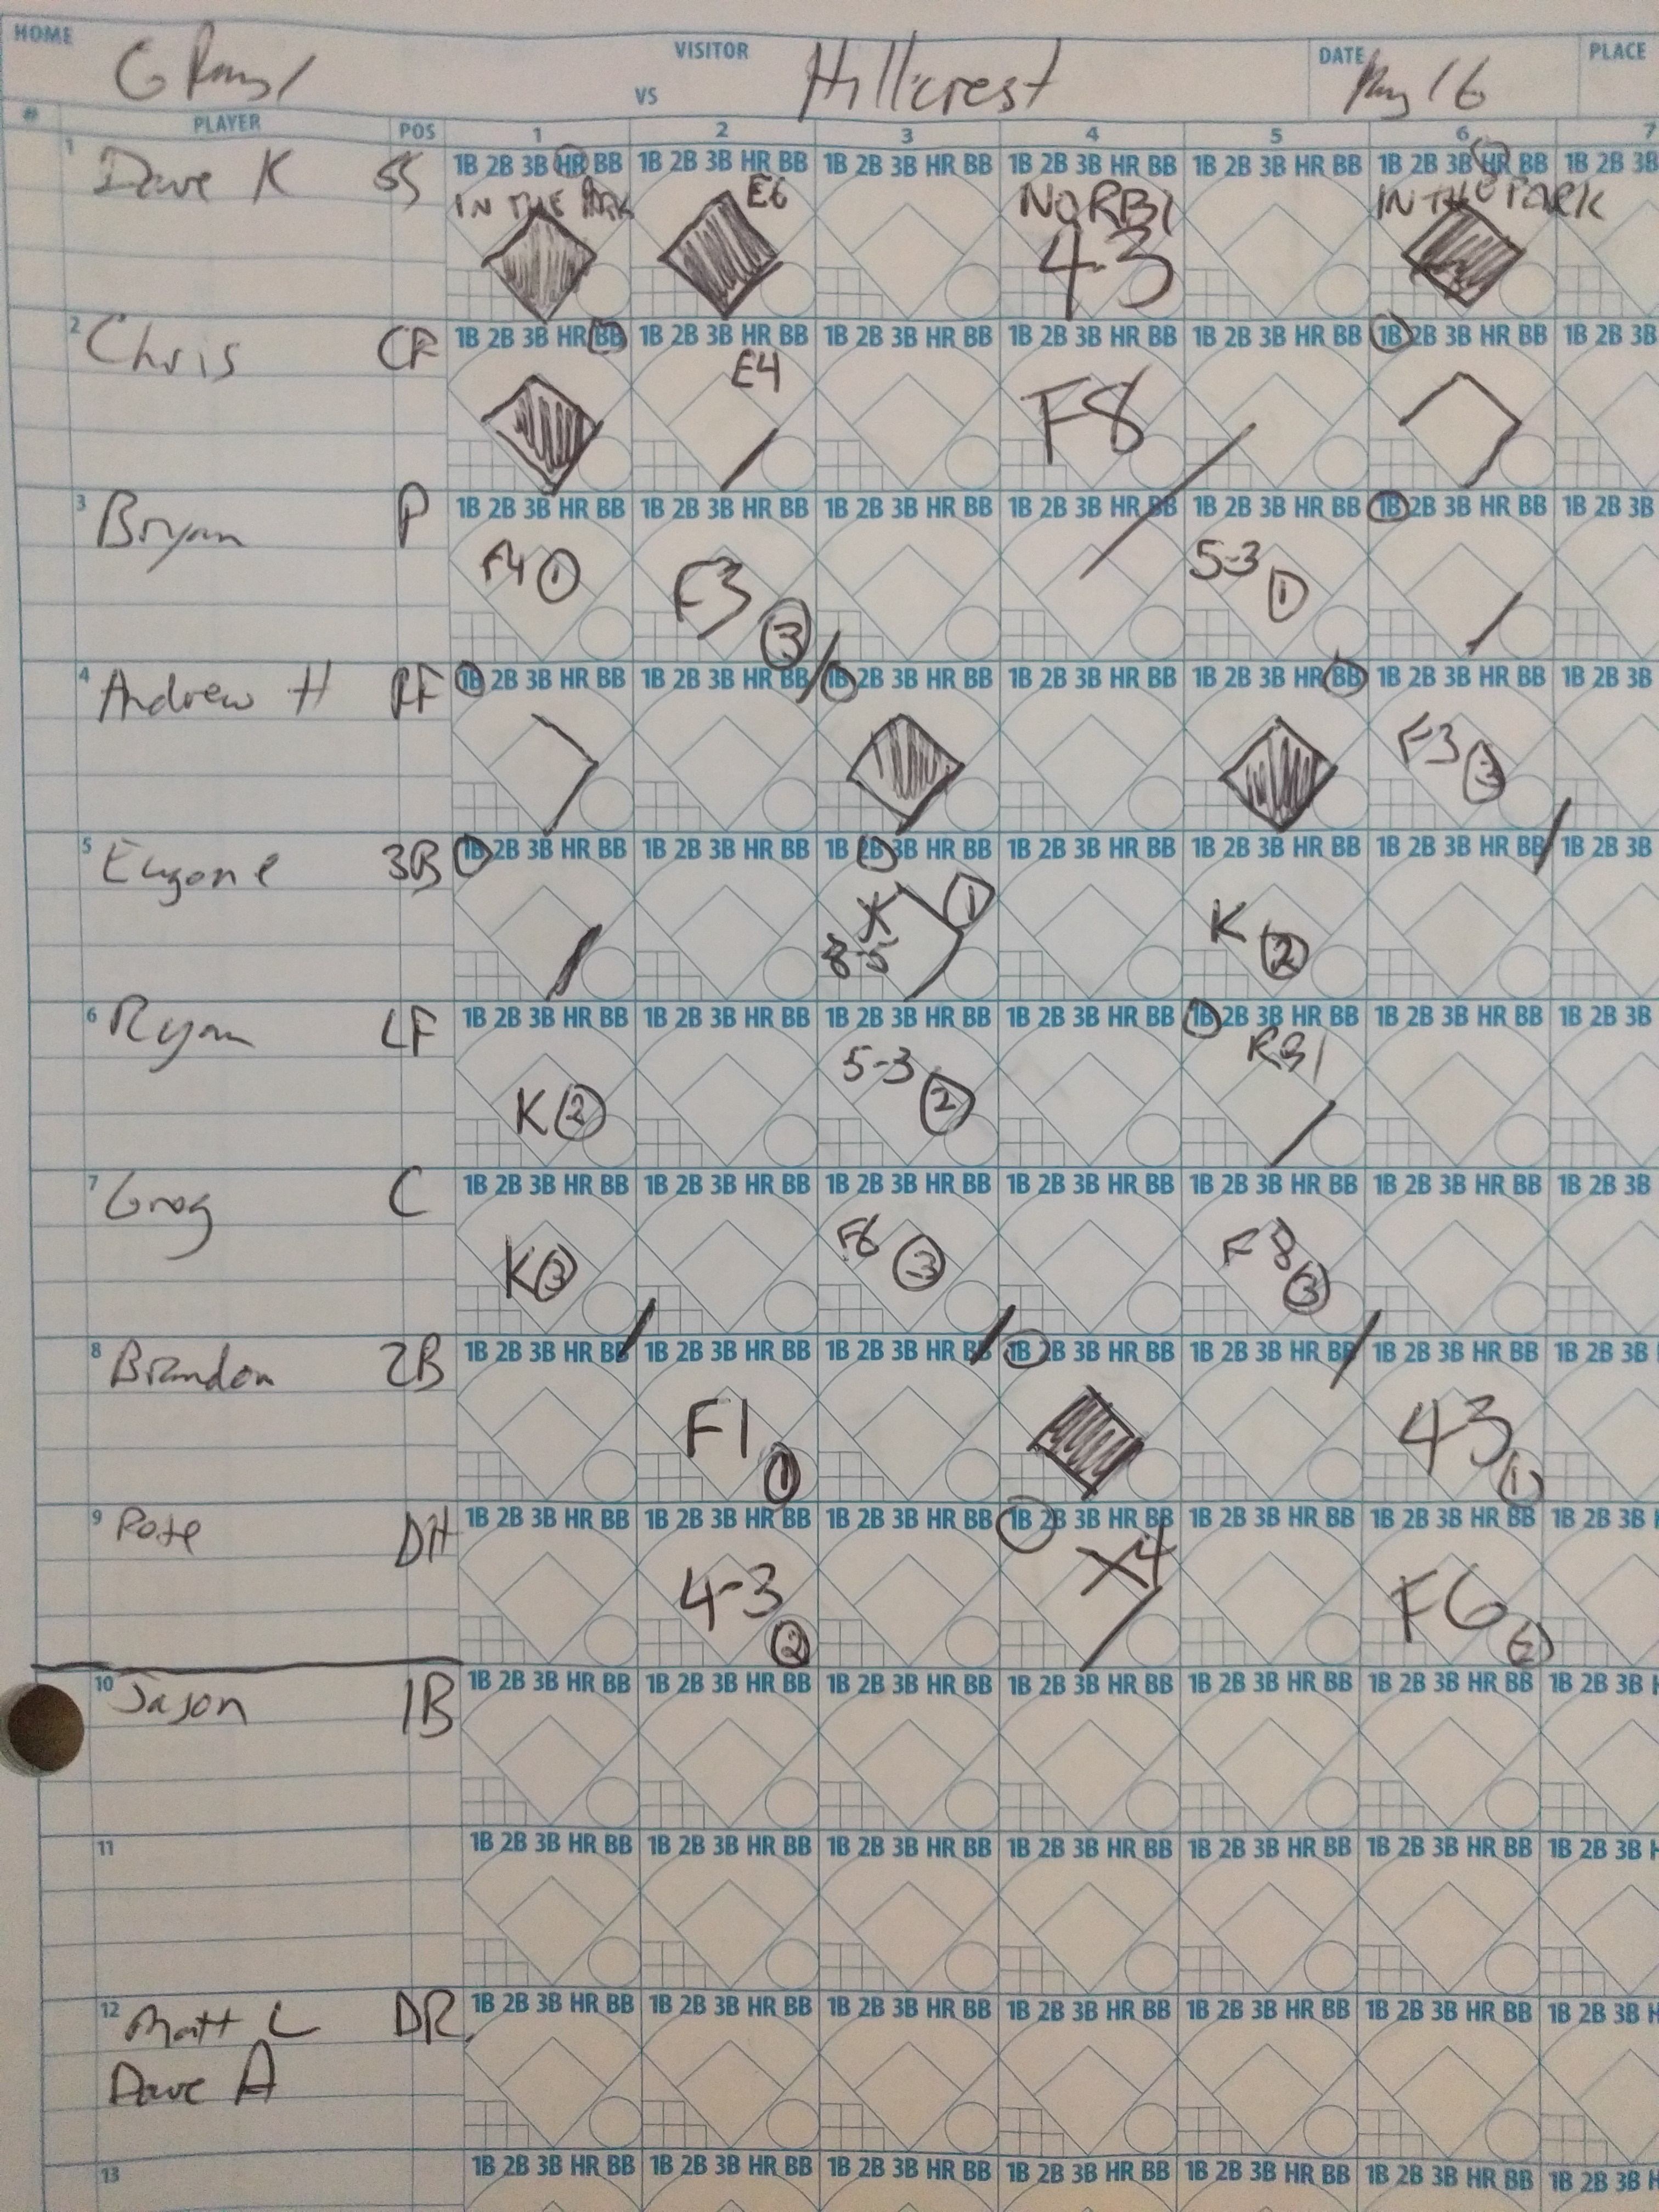 HOME VISITOR DATE PLACE
VS Hillcrest May 16
# PLAYER POS 1 2 3 4 5 6 7
1 Dave K SS 1B 2B 3B HR BB 1B 2B 3B HR BB 1B 2B 3B HR BB 1B 2B 3B HR BB 1B 2B 3B HR BB 1B 2B 3B HR BB 1B 2B 3B
IN THE PARK E6 NO RBI IN THE PARK
4-3
2 Chris CF 1B 2B 3B HR BB 1B 2B 3B HR BB 1B 2B 3B HR BB 1B 2B 3B HR BB 1B 2B 3B HR BB 1B 2B 3B HR BB 1B 2B 3B
E4 F8
3 Bryan P 1B 2B 3B HR BB 1B 2B 3B HR BB 1B 2B 3B HR BB 1B 2B 3B HR BB 1B 2B 3B HR BB 1B 2B 3B HR BB 1B 2B 3B
F4 1 F3 3 5-3 1
4 Andrew H RF 1B 2B 3B HR BB 1B 2B 3B HR BB 1B 2B 3B HR BB 1B 2B 3B HR BB 1B 2B 3B HR BB 1B 2B 3B HR BB 1B 2B 3B
F3 3
5 Eugene 3B 1B 2B 3B HR BB 1B 2B 3B HR BB 1B 2B 3B HR BB 1B 2B 3B HR BB 1B 2B 3B HR BB 1B 2B 3B HR BB 1B 2B 3B
K 1 K 2
8-5
6 Ryan LF 1B 2B 3B HR BB 1B 2B 3B HR BB 1B 2B 3B HR BB 1B 2B 3B HR BB 1B 2B 3B HR BB 1B 2B 3B HR BB 1B 2B 3B
K 2 5-3 2 RBI
7 Greg C 1B 2B 3B HR BB 1B 2B 3B HR BB 1B 2B 3B HR BB 1B 2B 3B HR BB 1B 2B 3B HR BB 1B 2B 3B HR BB 1B 2B 3B
K 3 F6 3 F8 3
8 Brandon 2B 1B 2B 3B HR BB 1B 2B 3B HR BB 1B 2B 3B HR BB 1B 2B 3B HR BB 1B 2B 3B HR BB 1B 2B 3B HR BB 1B 2B 3B
F1 1 43 1
9 Pete DH 1B 2B 3B HR BB 1B 2B 3B HR BB 1B 2B 3B HR BB 1B 2B 3B HR BB 1B 2B 3B HR BB 1B 2B 3B HR BB 1B 2B 3B H
4-3 2 F6 2
10 Jason 1B 1B 2B 3B HR BB 1B 2B 3B HR BB 1B 2B 3B HR BB 1B 2B 3B HR BB 1B 2B 3B HR BB 1B 2B 3B HR BB 1B 2B 3B H
11 1B 2B 3B HR BB 1B 2B 3B HR BB 1B 2B 3B HR BB 1B 2B 3B HR BB 1B 2B 3B HR BB 1B 2B 3B HR BB 1B 2B 3B H
12 Matt L DR 1B 2B 3B HR BB 1B 2B 3B HR BB 1B 2B 3B HR BB 1B 2B 3B HR BB 1B 2B 3B HR BB 1B 2B 3B HR BB 1B 2B 3B H
Dave A
13 1B 2B 3B HR BB 1B 2B 3B HR BB 1B 2B 3B HR BB 1B 2B 3B HR BB 1B 2B 3B HR BB 1B 2B 3B HR BB 1B 2B 3B H